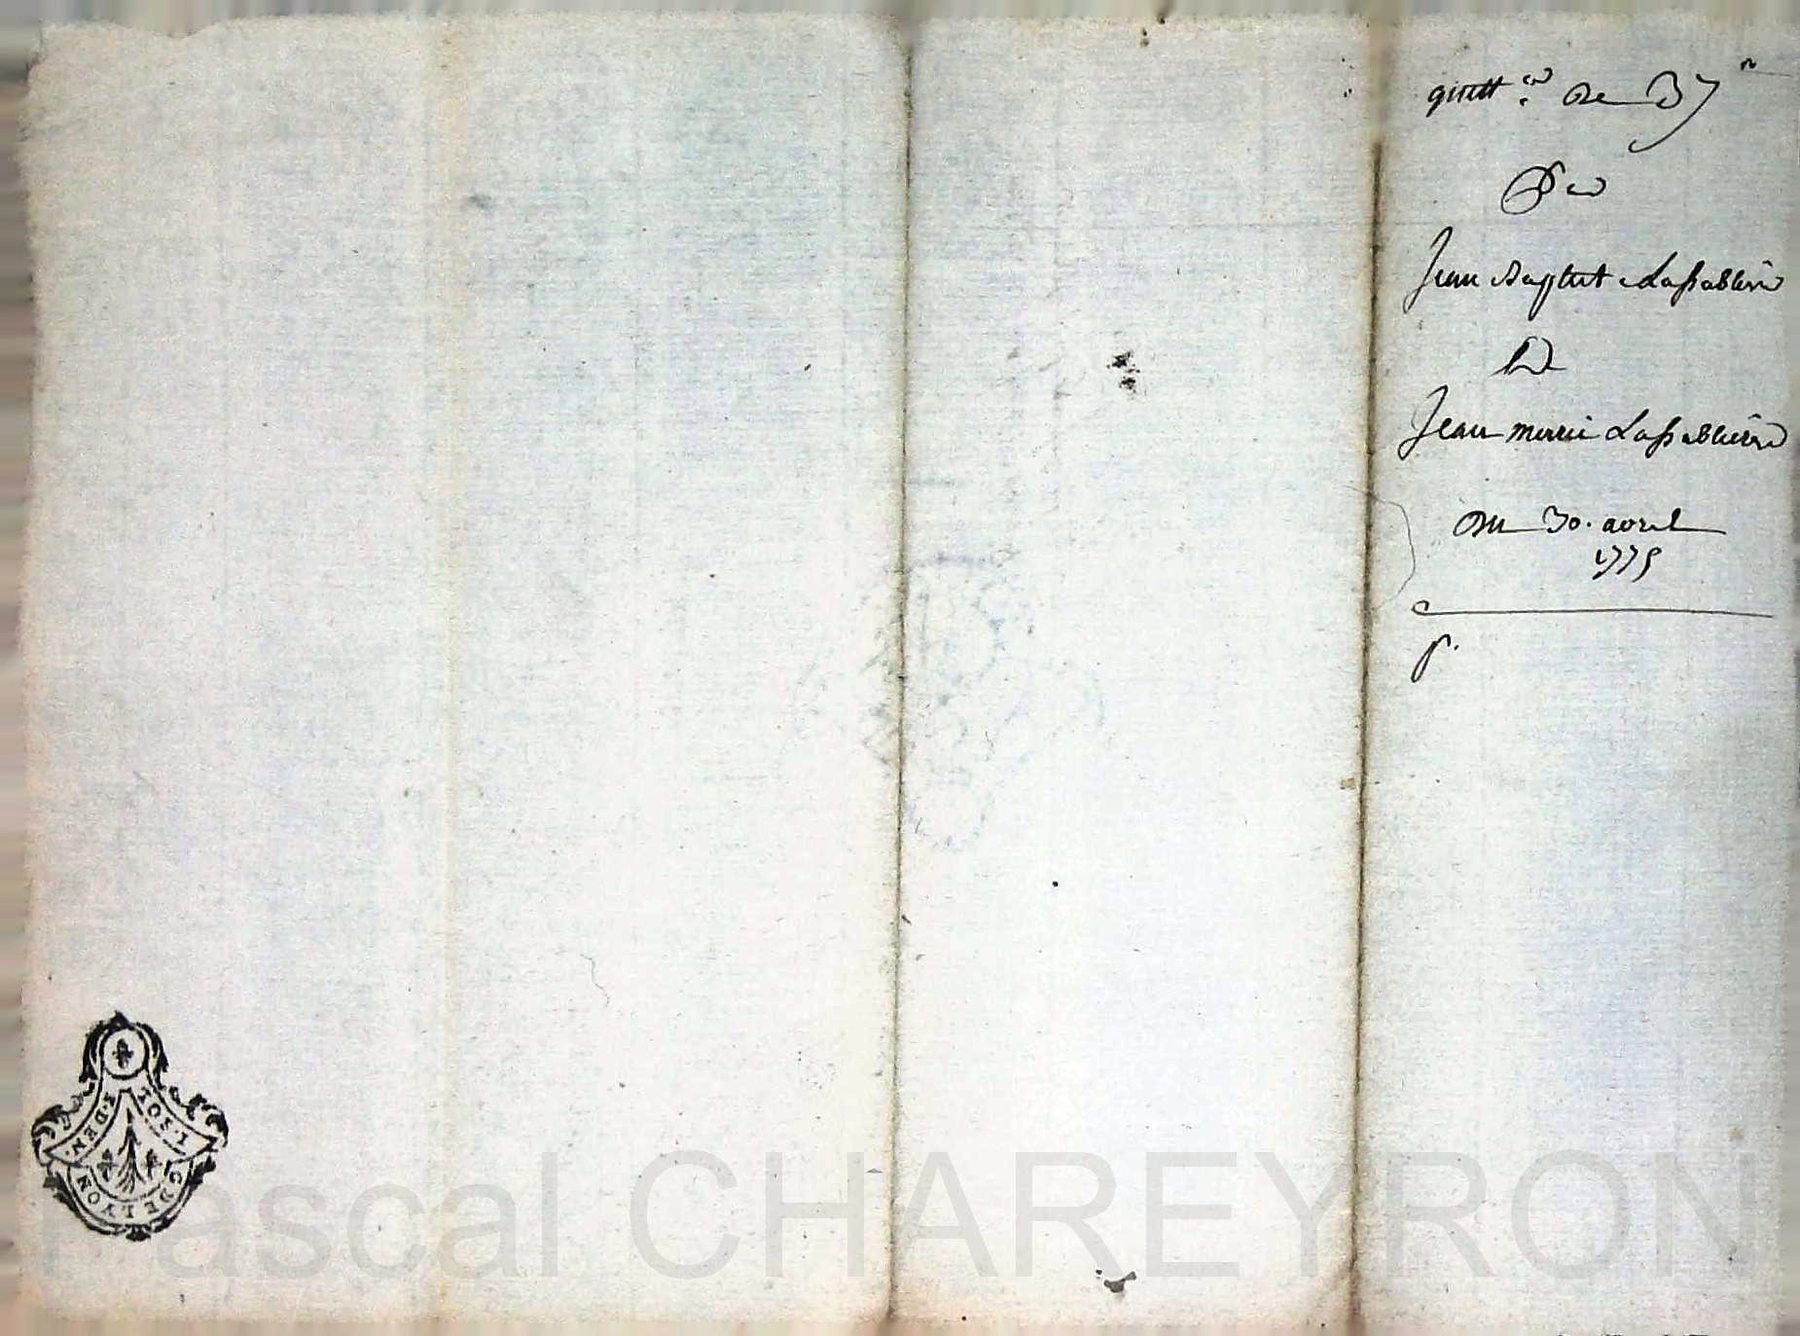 quitt.ce de 37
Pour
Jean Baptiste Lassablière
A
Jean marie Lassablière
Du 30. avril
1775
p.
1.SOL
8.DEN.
G DE LYON
Pascal CHAREYRON